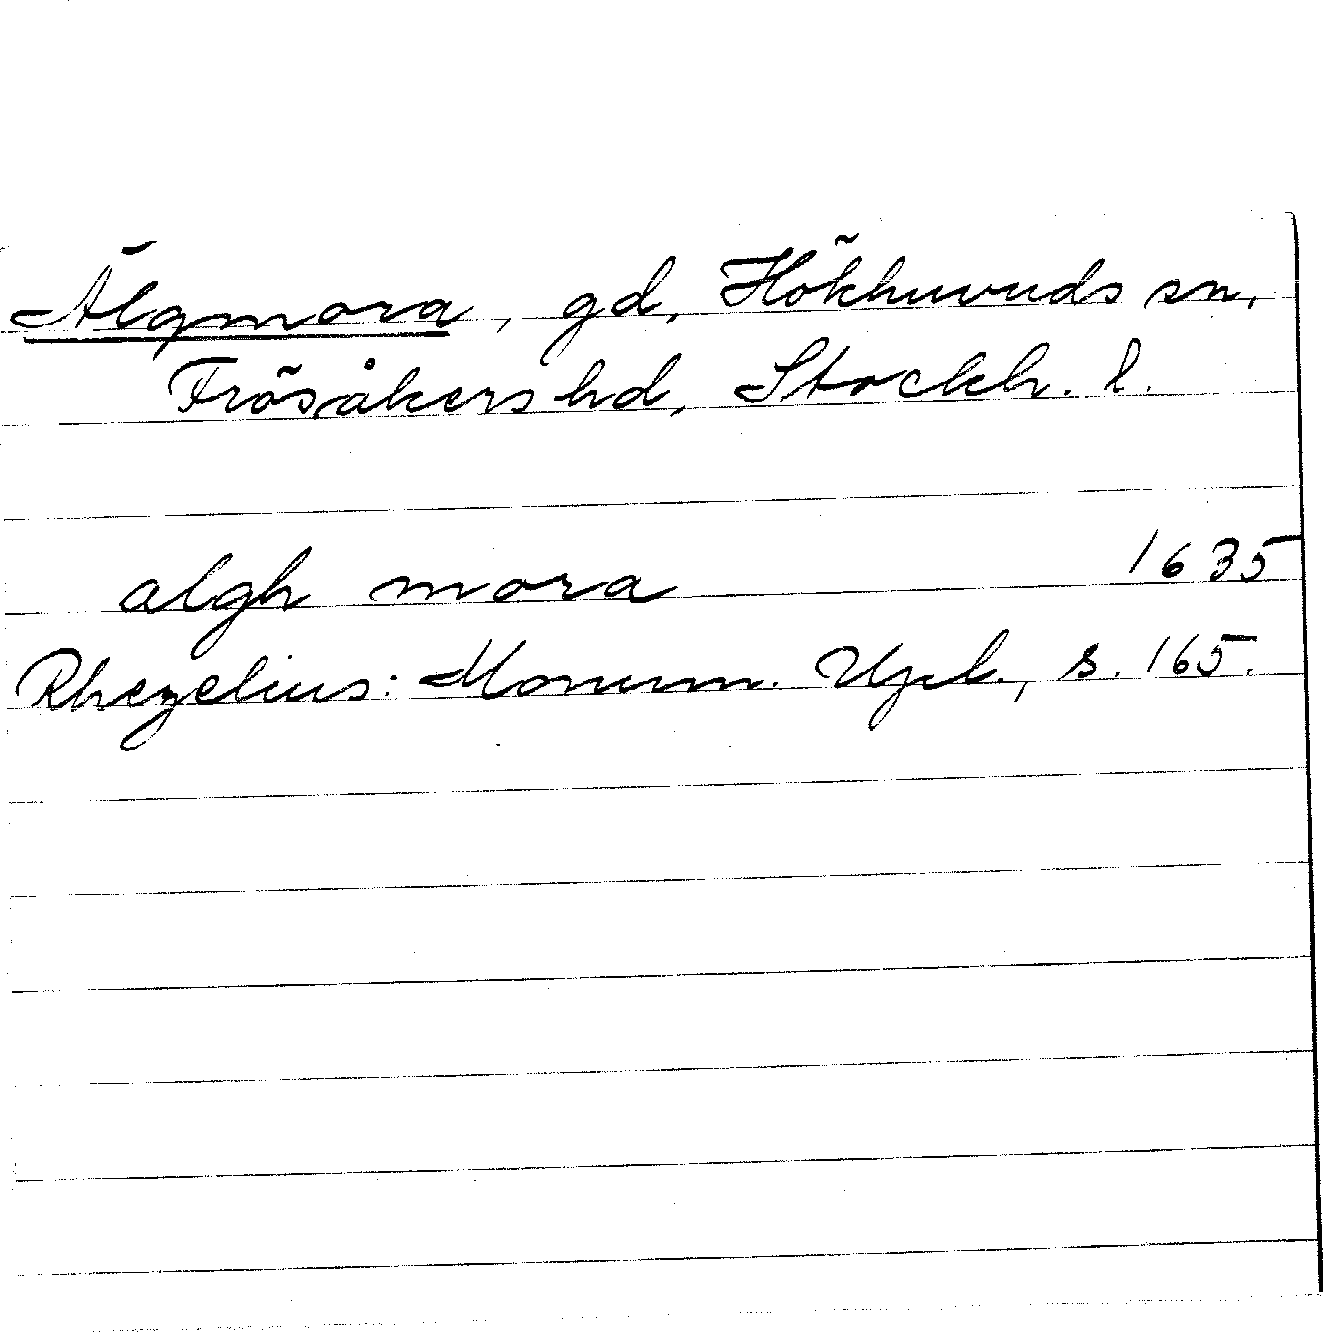 Älgmora, gd, Hökhuvuds sn,
Frösåkers hd, Stockh. l.
algh mora 1635
Rhezelius: Monum. Upl., s. 165.